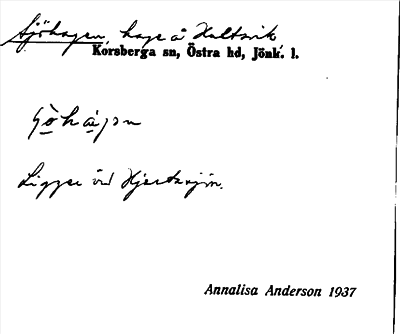 Sjöhagen, hage å Hultsvik
Korsberga sn, Östra hd, Jönk. l.
Ligger vid Hjertasjön.
Annalisa Anderson 1937